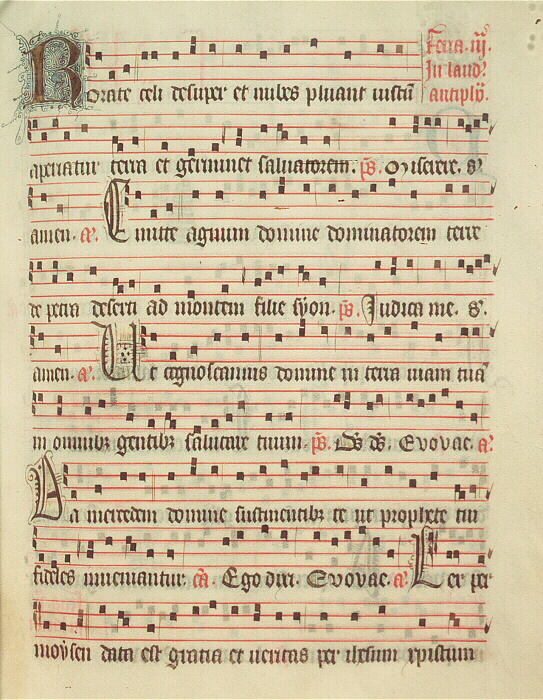 Feria. iij.
In laud?
antiphõ.
Rorate celi desuper et nubes pluant iustũ
aperiatur terra et germinet saluatorem. p̃s. Miserere. &
amen. a. Emitte agnum domine dominatorem terre
de petra deserti ad montem filie syon. p̃s. Iudica me. &.
amen. a. Ut cognoscamus domine in terra uiam tuã
in omnibꝫ gentibꝫ salutare tuum. p̃s. Ds̃ ds̃. Euouae. a
Da mercedem domine sustinentibꝫ te ut prophete tui
fideles inueniantur. cã. Ego dixi. Euouae. a. Lex per
moysen data est gratia et ueritas per ihesum xpistum